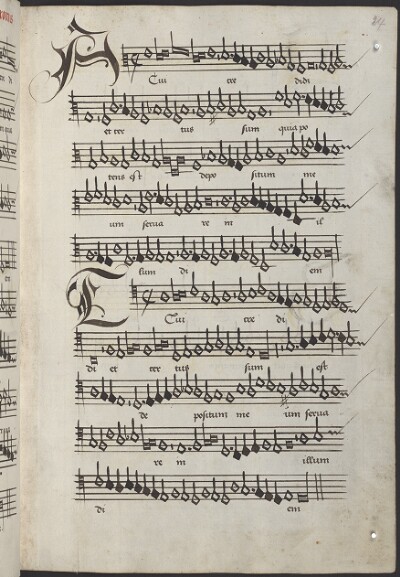 Cui cre didi
et cer tus sum quia po
tens est depo situm me
um serua re in il
lum di em
Cui cre di
di et cer tus sum est
de positum me um serua
re in illum
di em